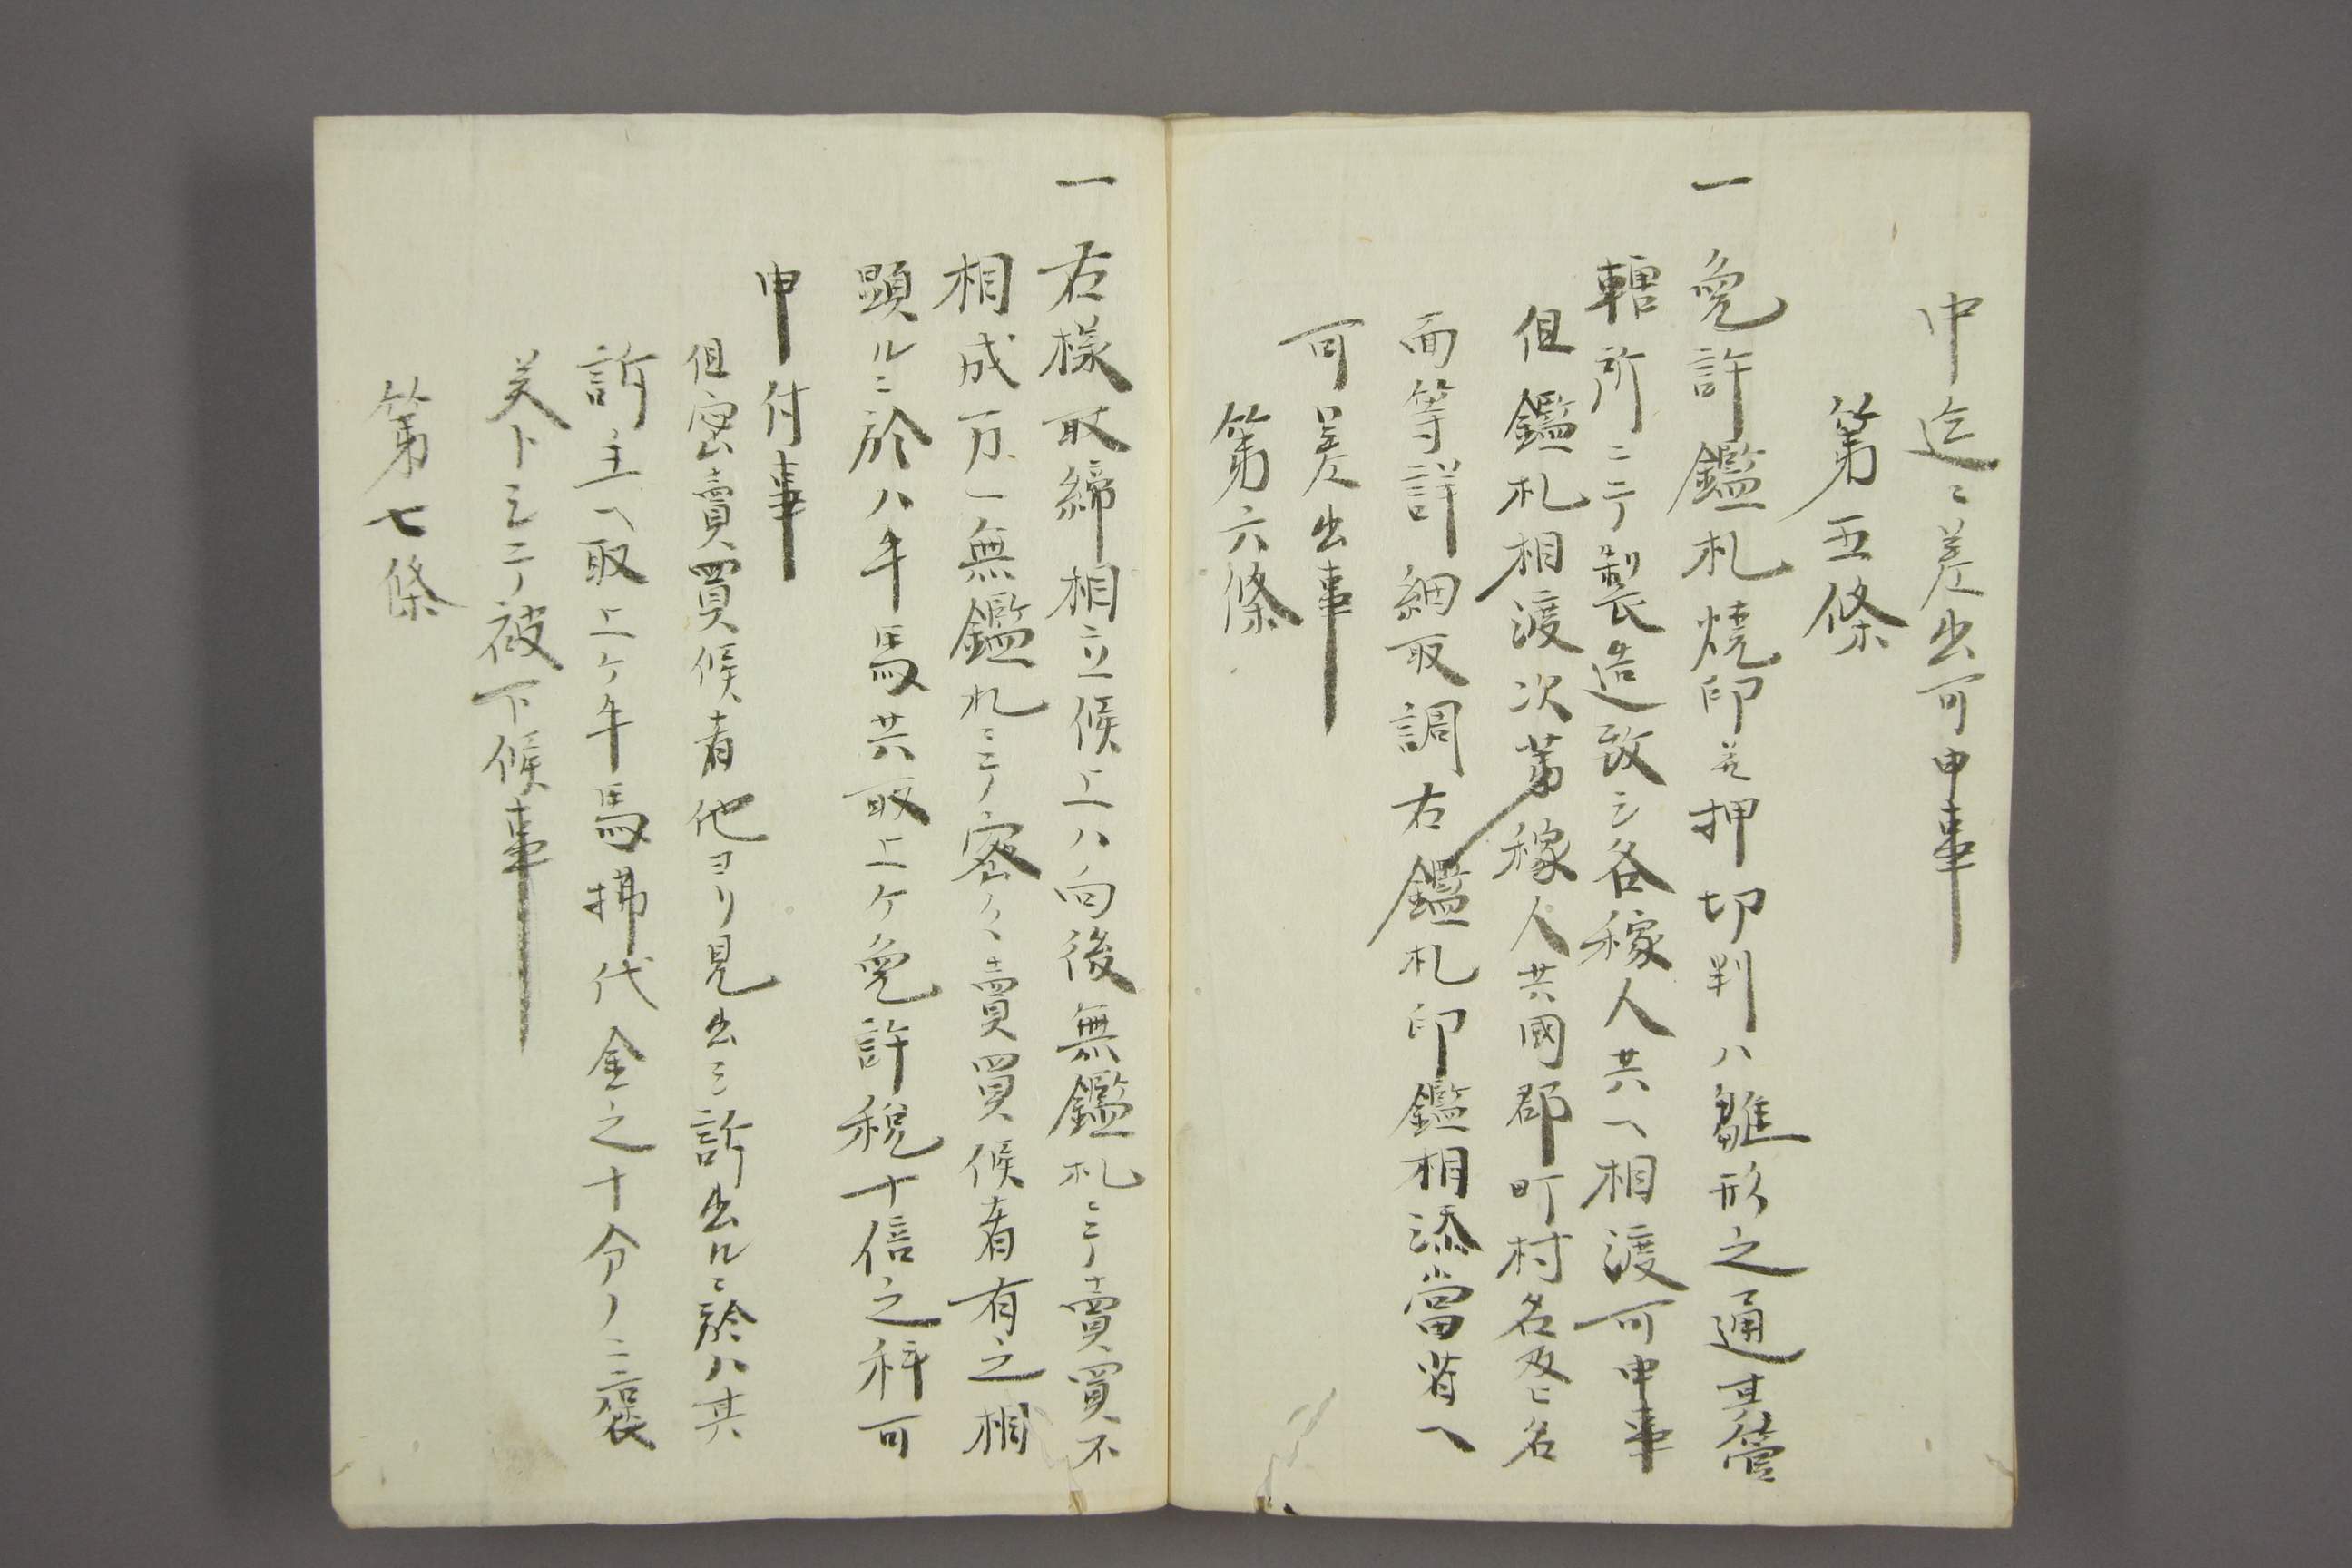 中迄ニ差出可申事
第五條
一免許鑑札焼印並押切判ハ雛形之通其管
轄所ニテ製造致シ各稼人共ヘ相渡可申事
但鑑札相渡次第稼人共國郡町村名及ヒ名
面等詳細取調右鑑札印鑑相添當省ヘ
可差出事
第六條
一右様取締相立候上ハ向後無鑑札ニテ賣買不
相成万一無鑑札ニテ密々賣買候者有之相
顕ルニ於ハ牛馬共取上ケ免許税十倍之科可
申付事
但密賣買候者他ヨリ見出シ訴出ルニ於ハ其
訴主ヘ取上ケ牛馬拂代金之十分ノ二褒
美トシテ被下候事
第七條